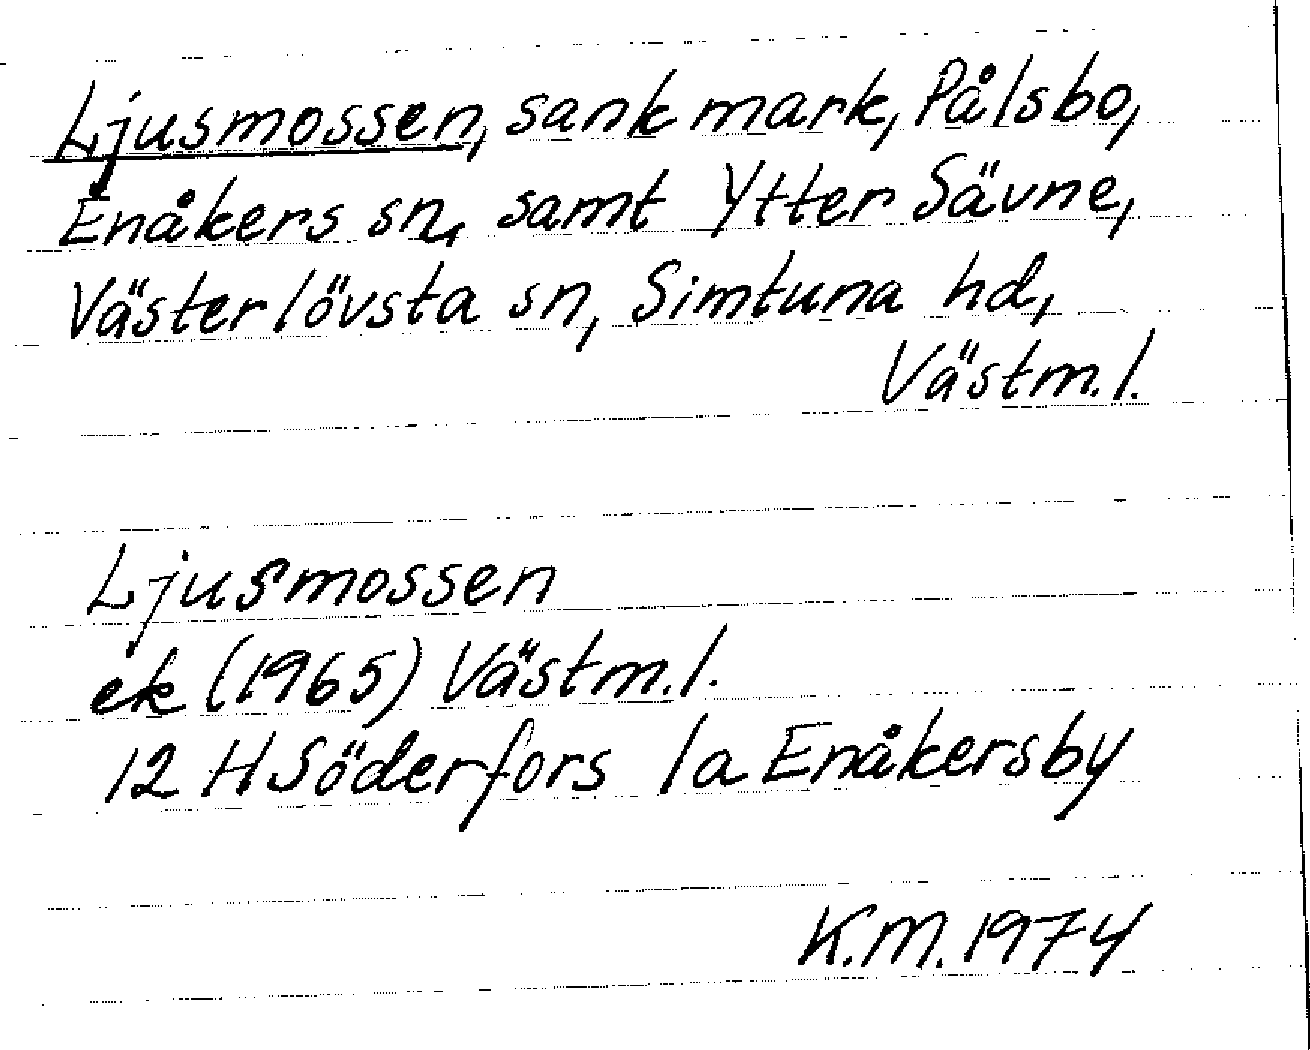 Ljusmossen, sank mark, Pålsbo,
Enåkers sn, samt Ytter Sävne,
Västerlövsta sn, Simtuna hd,
Västm.l.
Ljusmossen
ek (1965) Västm.l.
12 H Söderfors 1a Enåkersby
K.M. 1974